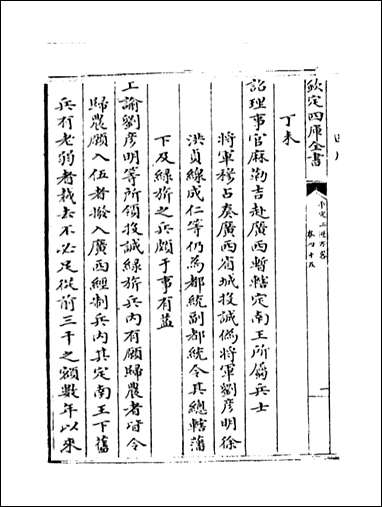 欽定四庫全書
平定三逆方畧
卷四十五
丁未
詔理事官麻勒吉赴廣西暫轄定南王所屬兵士
將軍穆占奏廣西省城投誠偽將軍劉彥明徐
洪貞線成仁等仍為都統副都統令其總轄藩
下及綠旂之兵頗于事有益
上諭劉彥明等所領投誠綠旂兵內有願歸農者皆令
歸農願入伍者撥入廣西經制兵內其定南王下舊
兵有老弱者裁去不必足從前三千之額數年以來